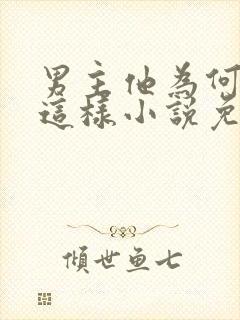 男主他為何
這樣小說免
傾世魚七